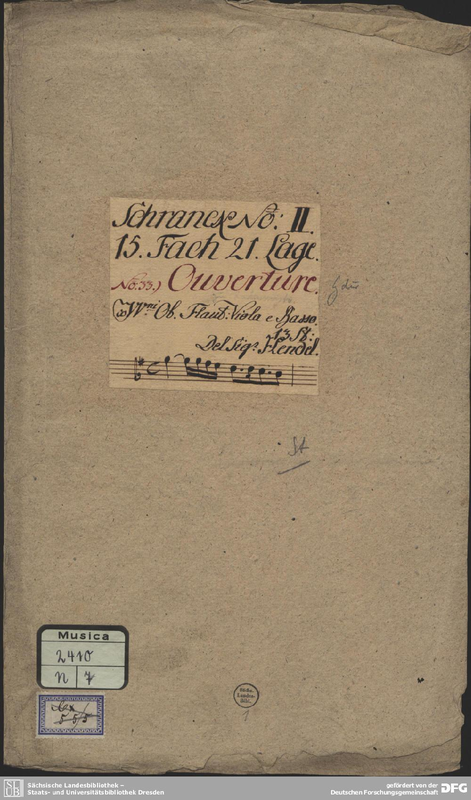 Schranck No: II.
15. Fach 21. Lage.
No: 33.) Ouverture.
VVni Ob. Flaut: Viola e Basso.
13 St:
Del Sigr. Hendel.
St
Musica
2410
n 7
Sächs.
Landes-
Bibl.
1
Sächsische Landesbibliothek –
Staats- und Universitätsbibliothek Dresden
gefördert von der
Deutschen Forschungsgemeinschaft
DFG